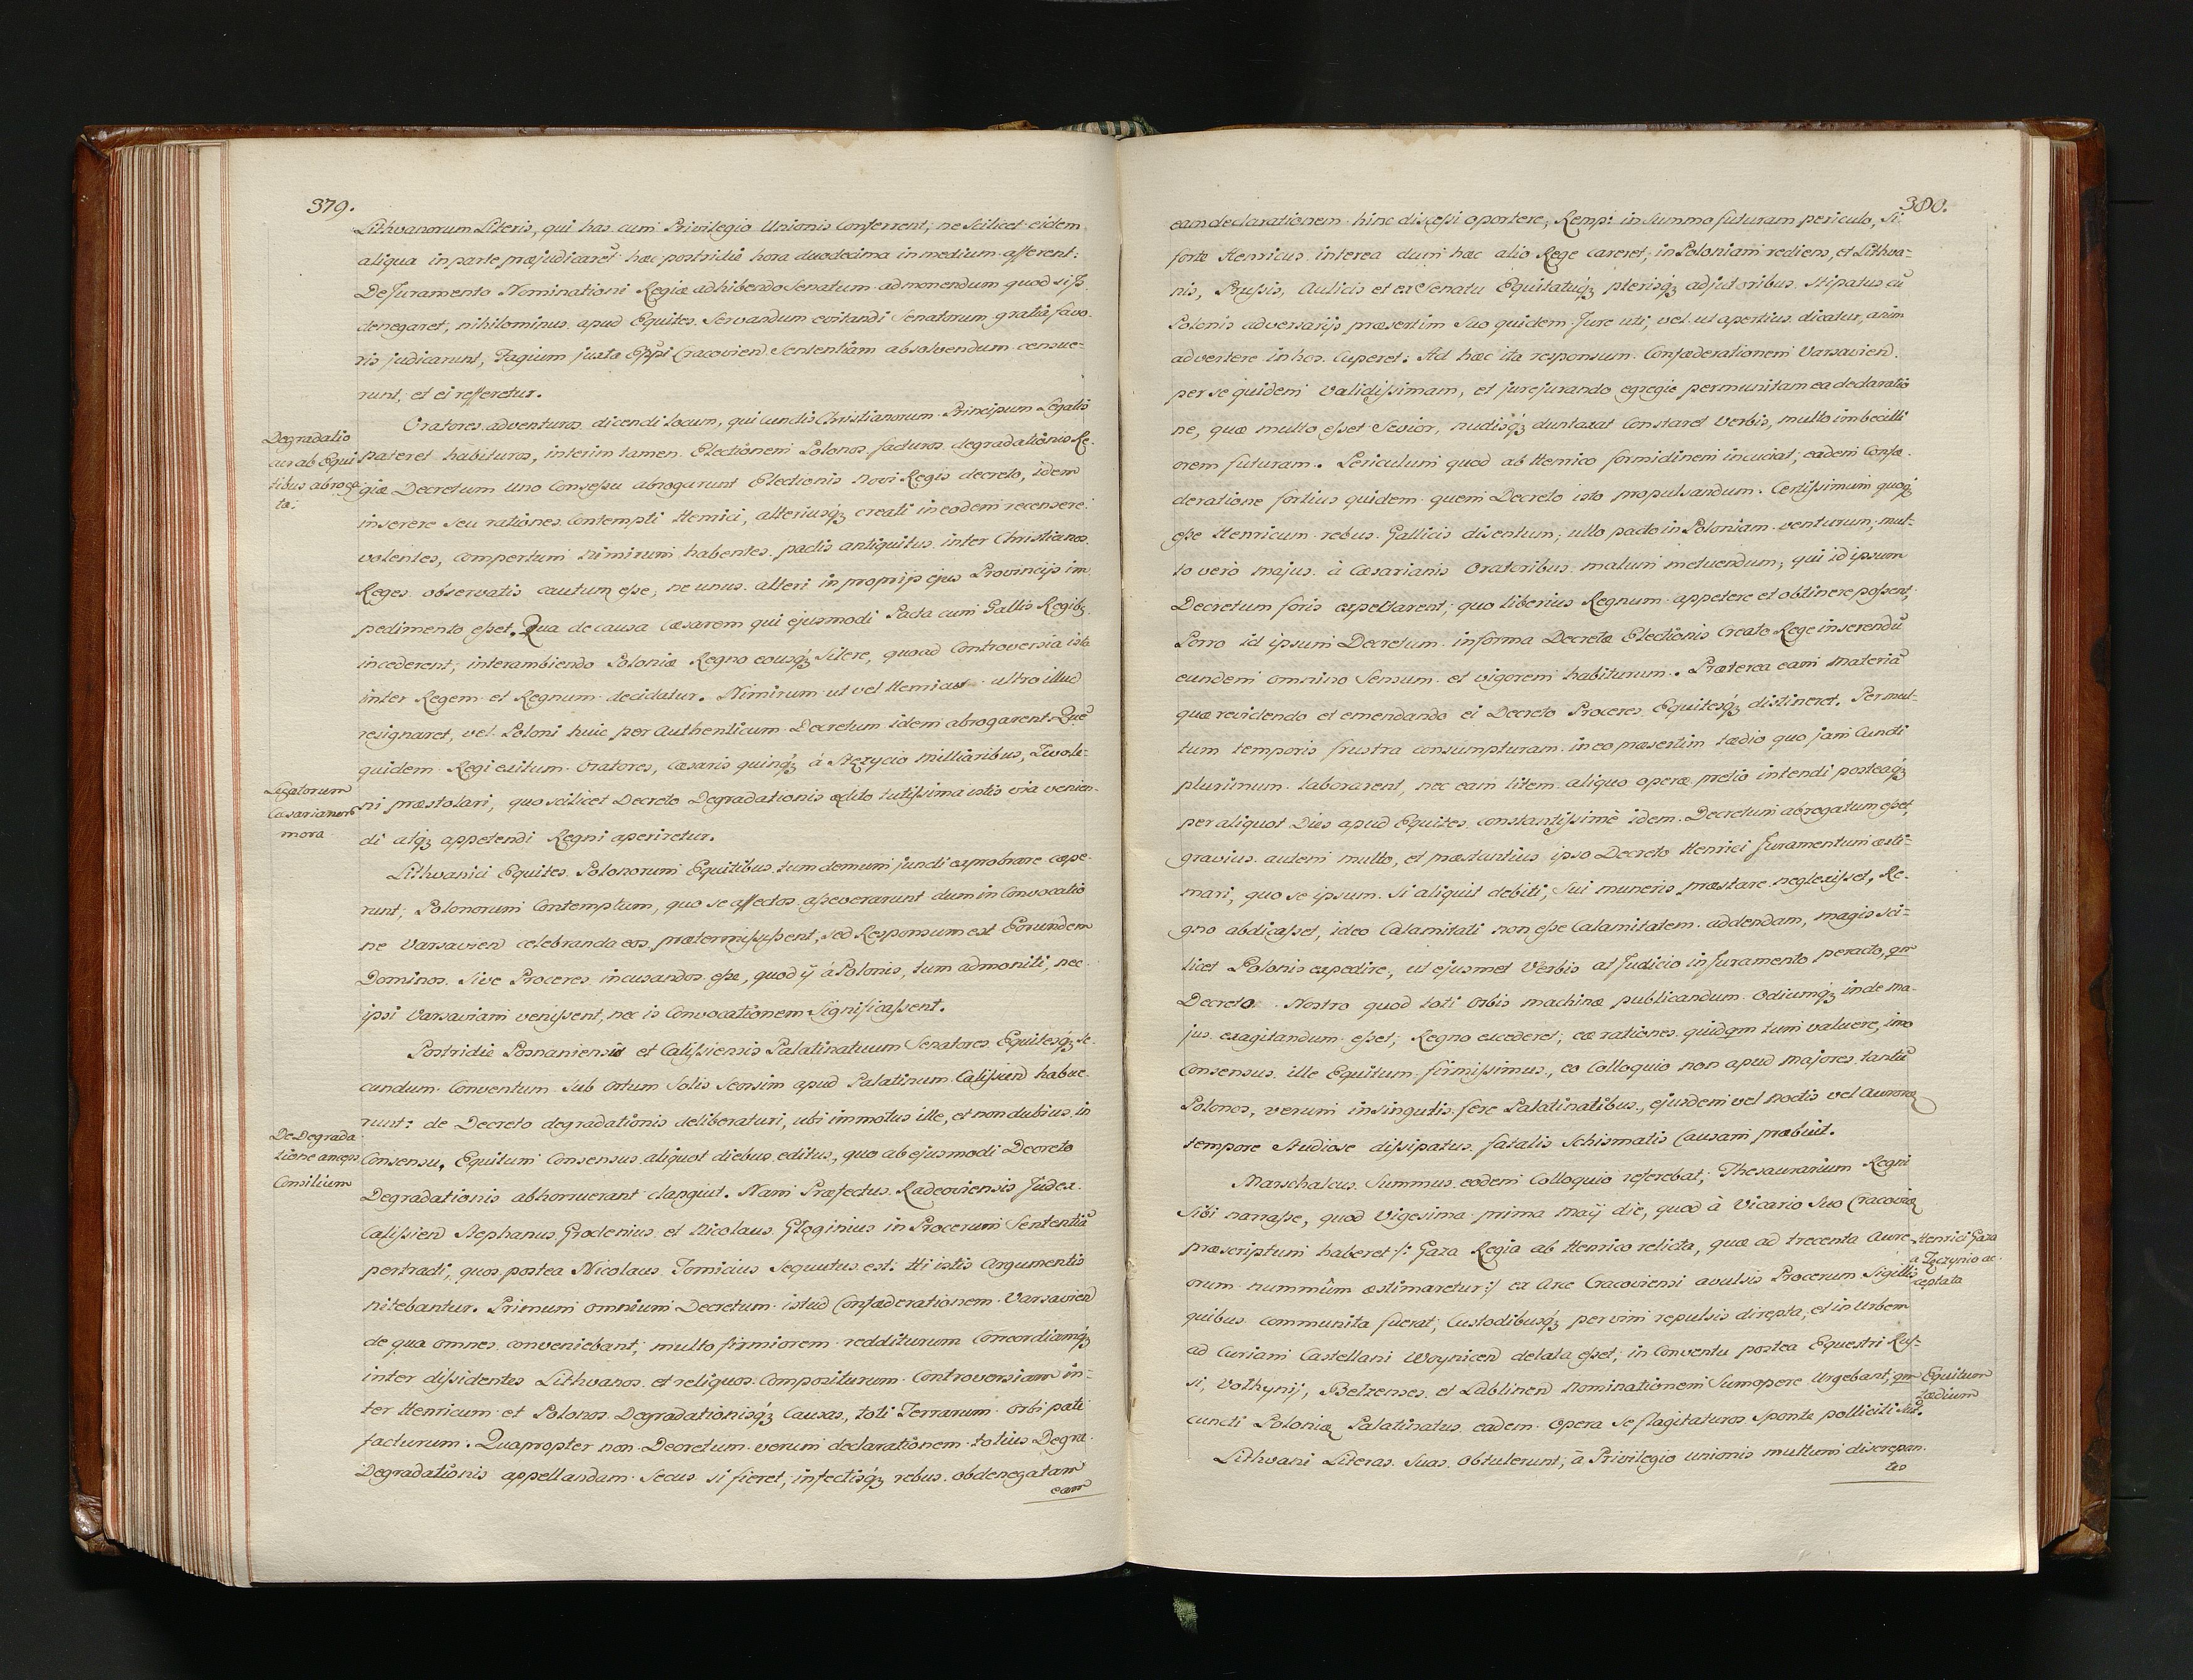 379.
Lithvanorum Literis, qui has cum Privilegio Unionis Conferrent; ne Scilicet eidem
aliqua in parte præjudicaret hæc postridie hora duodecima in medium afferent:
De Juramento Nominationi Regiæ adhibendo Senatum admonendum quod si is
denegaret, nihilominus apud Equites Servandum evitandi Senatorum gratia favo-
ris judicarunt, Tagium juxta Eppi Cracovien Sententiam absolvendum censue-
runt, et ei refferetur.
Oratores adventuros dicendi locum, qui cundis Christianorum Principum Legatis
Degradatio
aur ab Equi
tibus abroga
ta:
pateret habituros, interim tamen Electionem Polonos facturos degradationis Re-
giæ Decretum uno Consessu abrogarunt Electionis novi Regis decreto, idem
inserere seu rationes Contempti Henrici, alteriusq3 creati in eodem recensere
volentes, compertum nimirum habentes pactis antiquitus inter Christianos
Reges observatis cautum esse, ne unus alteri in proprijs ejus Provincijs im
pedimento esset. Qua de causa Cæsarem qui ejusmodi Pacta cum Gallis Regib3
incederent; interambiendo Poloniæ Regno eousq3 Silere, quoad Controversia ista
inter Regem et Regnum decidatur. Nimirum ut vel Henricus ultro illud
resignaret, vel Poloni huic per Authenticum Decretum idem abrogarent. Que
quidem Regi exitum Oratores, Cæsaris quinq3 à Stezycio milliaribus, Zwole-
Legatorum
Cæsarianor
mora
ni præstolari, quo scilicet Decreto Degradationis edito tutissima istis via venien-
di atq3 appetendi Regni aperiretur.
Lithvanici Equites Polonorum Equitibus tum demum juncti exprobrare cæpe-
runt; Polonorum Contemptum, quo se affectos asseverarunt dum in Convocatio
ne Varsavien celebranda eos prætermisissent, sed Responsum est Eorundem
Dominos Sive Proceres incusandos esse, quod ÿ à Polonis, tum admoniti, nec
ipsi Varsaviam venissent, nec is Convocationem Significassent.
Postridie Posnaniensis et Calissiensis Palatinatuum Senatores Equitesq3 se-
cundum Conventum sub ortum Solis Seorsim apud Palatinum Calissien habue-
runt: de Decreto degradationis deliberaturi, ubi immotus ille, et non dubius in
De Degrada
tione anceps
Consilium
Consensu, Equitum Consensus aliquot diebus editus, quo ab ejusmodi Decreto
Degradationis abhorruerant clanguit. Nam Præfectus Radeoviensis Judex
Calissien Stephanus Grodenius et Nicolaus Gloginius in Procerum Sententia
pertracti, quos postea Nicolaus Tomicius Sequutus est: Hi istis Argumentis
nitebantur. Primum omnium Decretum istud Confæderationem Varsavien
de qua omnes conveniebant, multo firmiorem redditurum Concordiamq3
inter dissidentes Lithvanos et reliquos Compositurum Controversiam in-
ter Henricum et Polonos Degradationisq3 Causas, toti Terrarum Orbi pate
facturum. Quapropter non Decretum verum declarationem totius Degra-
Degradationis appellandam Secus si fieret, infectisq3 rebus obdenegatam
eam
380.
eam declarationem hinc discessi oportere, Rempu in summo futuram periculo, Si
forte Henricus interea dum hæc alio Rege careret, in Poloniam rediens, et Lithva-
nis, Prussis, Aulicis et ex Senatu Equitatuq3 plerisq3 adjutoribus Stipatus cu
Polonis adversarijs præsertim suo quidem Jure uti, vel ut apertius dicatur, anim
advertere in hos Cuperet: Ad hæc ita responsum Confæderationem Varsavien
per se quidem Validissimam, et jurejurando egregie permunitam ea declaratio
ne, quæ multo esset Sevior, nudisq3 duntaxat Constaret Verbis, multo imbecilli
orem futuram. Periculum quod ab Henrico formidinem incuciat, eadem Confæ-
deratione fortius quidem quem Decreto isto propulsandum. Certissimum quoq3
esse Henricum rebus Gallicis distentum, ullo pacto in Poloniam venturum, mul-
to vero majus à Cæsarianis Oratoribus malum metuendum, qui id ipsum
Decretum foris expectarent, quo liberius Regnum appetere et obtinere possent,
Porro id ipsum Decretum in forma Decretæ Electionis Creato Rege inserendu
eundem omnino Sensum et vigorem habiturum. Præterea eam Materia
quæ revidendo et emendando ei Decreto Proceres Equitesq3 distineret. Permul-
tum temporis frustra consumpturam in eo præsertim tædio quo jam Cuncti
plurimum laborarent, nec eam litem aliquo operæ pretio intendi posteaq3
per aliquot Dies apud Equites constantissimè idem Decretum abrogatum esset,
gravius autem multo, et præstantius ipso Decreto Henrici Juramentum æsti-
mari, quo se ipsum si aliquit debiti, sui muneris præstare neglexisset, Re-
gno abdicasset, ideo Calamitati non esse Calamitatem addendam, magis sci-
licet Polonis expedire, ut ejusmet Verbis at Judicio in Juramento peracto, qm
Decreto Nostro quod toti Orbis machinæ publicandum Odiumq3 inde ma-
jus exagitandum esset; Regno excederet; eæ rationes quidqm tum valuere, imo
Consensus ille Equitum firmissimus, eo Colloquio non apud Majores tantu
Polonos, verum in singulis fere Palatinatibus, ejusdem vel noctis vel Auroræ
tempore Studiose dissipatus fatalis Schismatis Causam præbuit.
Marschalcus Summus eodem Colloquio referebat; Thesaurarium Regni
Sibi narrasse, quod Vigesima prima Maÿ die, quod à Vicario suo Cracoviæ
præscriptum haberet /: Gaza Regia ab Henrico relicta, quæ ad trecenta Aure-
Henrici Gaza
a Tęczynio ac-
ceptata
orum nummûm æstimaretur :/ ex Arce Cracoviensi avulsis Procerum Sigillis
quibus communita fuerat, Custodibusq3 per vim repulsis direpta, et in Urbem
ad Curiam Castellani Woynicen delata esset, in Conventu postea Equestri Rus-
si, Volhynij, Belzenses et Lublinen Nominationem Sumopere Urgebant, qm
Equitum
tædium
cuncti Poloniæ Palatinatus eadem opera se flagitaturos Sponte polliciti sut.
Lithvani Literas Suas Obtulerunt, à Privilegio unionis multum discrepan-
tes